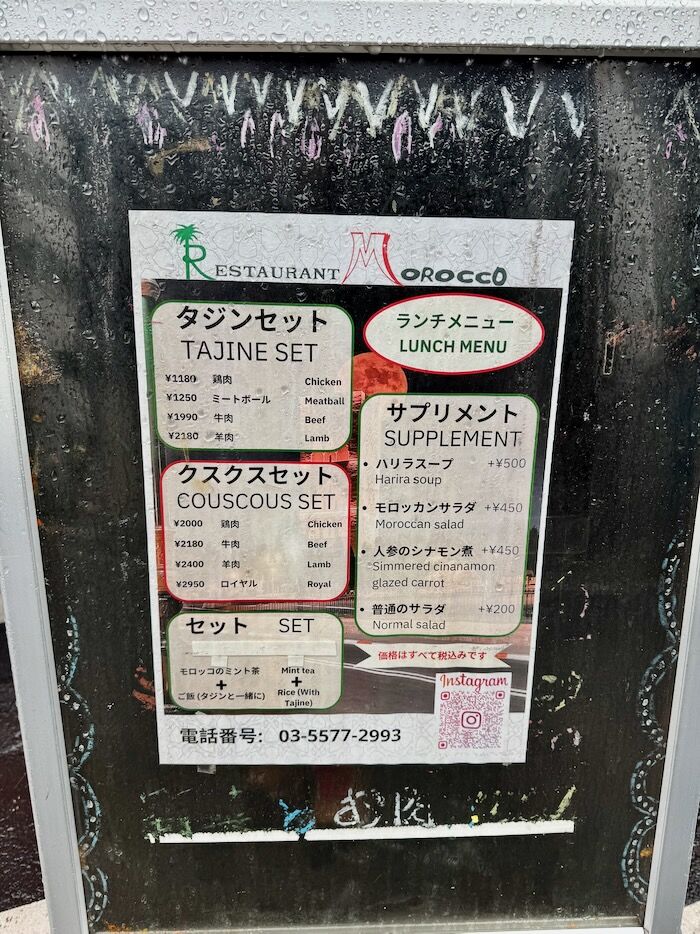 RESTAURANT MOROCCO
タジンセット
TAJINE SET
¥1180 鶏肉 Chicken
¥1250 ミートボール Meatball
¥1990 牛肉 Beef
¥2180 羊肉 Lamb
ランチメニュー
LUNCH MENU
クスクスセット
COUSCOUS SET
¥2000 鶏肉 Chicken
¥2180 牛肉 Beef
¥2400 羊肉 Lamb
¥2950 ロイヤル Royal
サプリメント
SUPPLEMENT
• ハリラスープ +¥500
Harira soup
• モロッカンサラダ +¥450
Moroccan salad
• 人参のシナモン煮 +¥450
Simmered cinanamon
glazed carrot
• 普通のサラダ +¥200
Normal salad
セット SET
モロッコのミント茶 Mint tea
+ +
ご飯 (タジンと一緒に) Rice (With
Tajine)
価格はすべて税込みです
Instagram
電話番号: 03-5577-2993